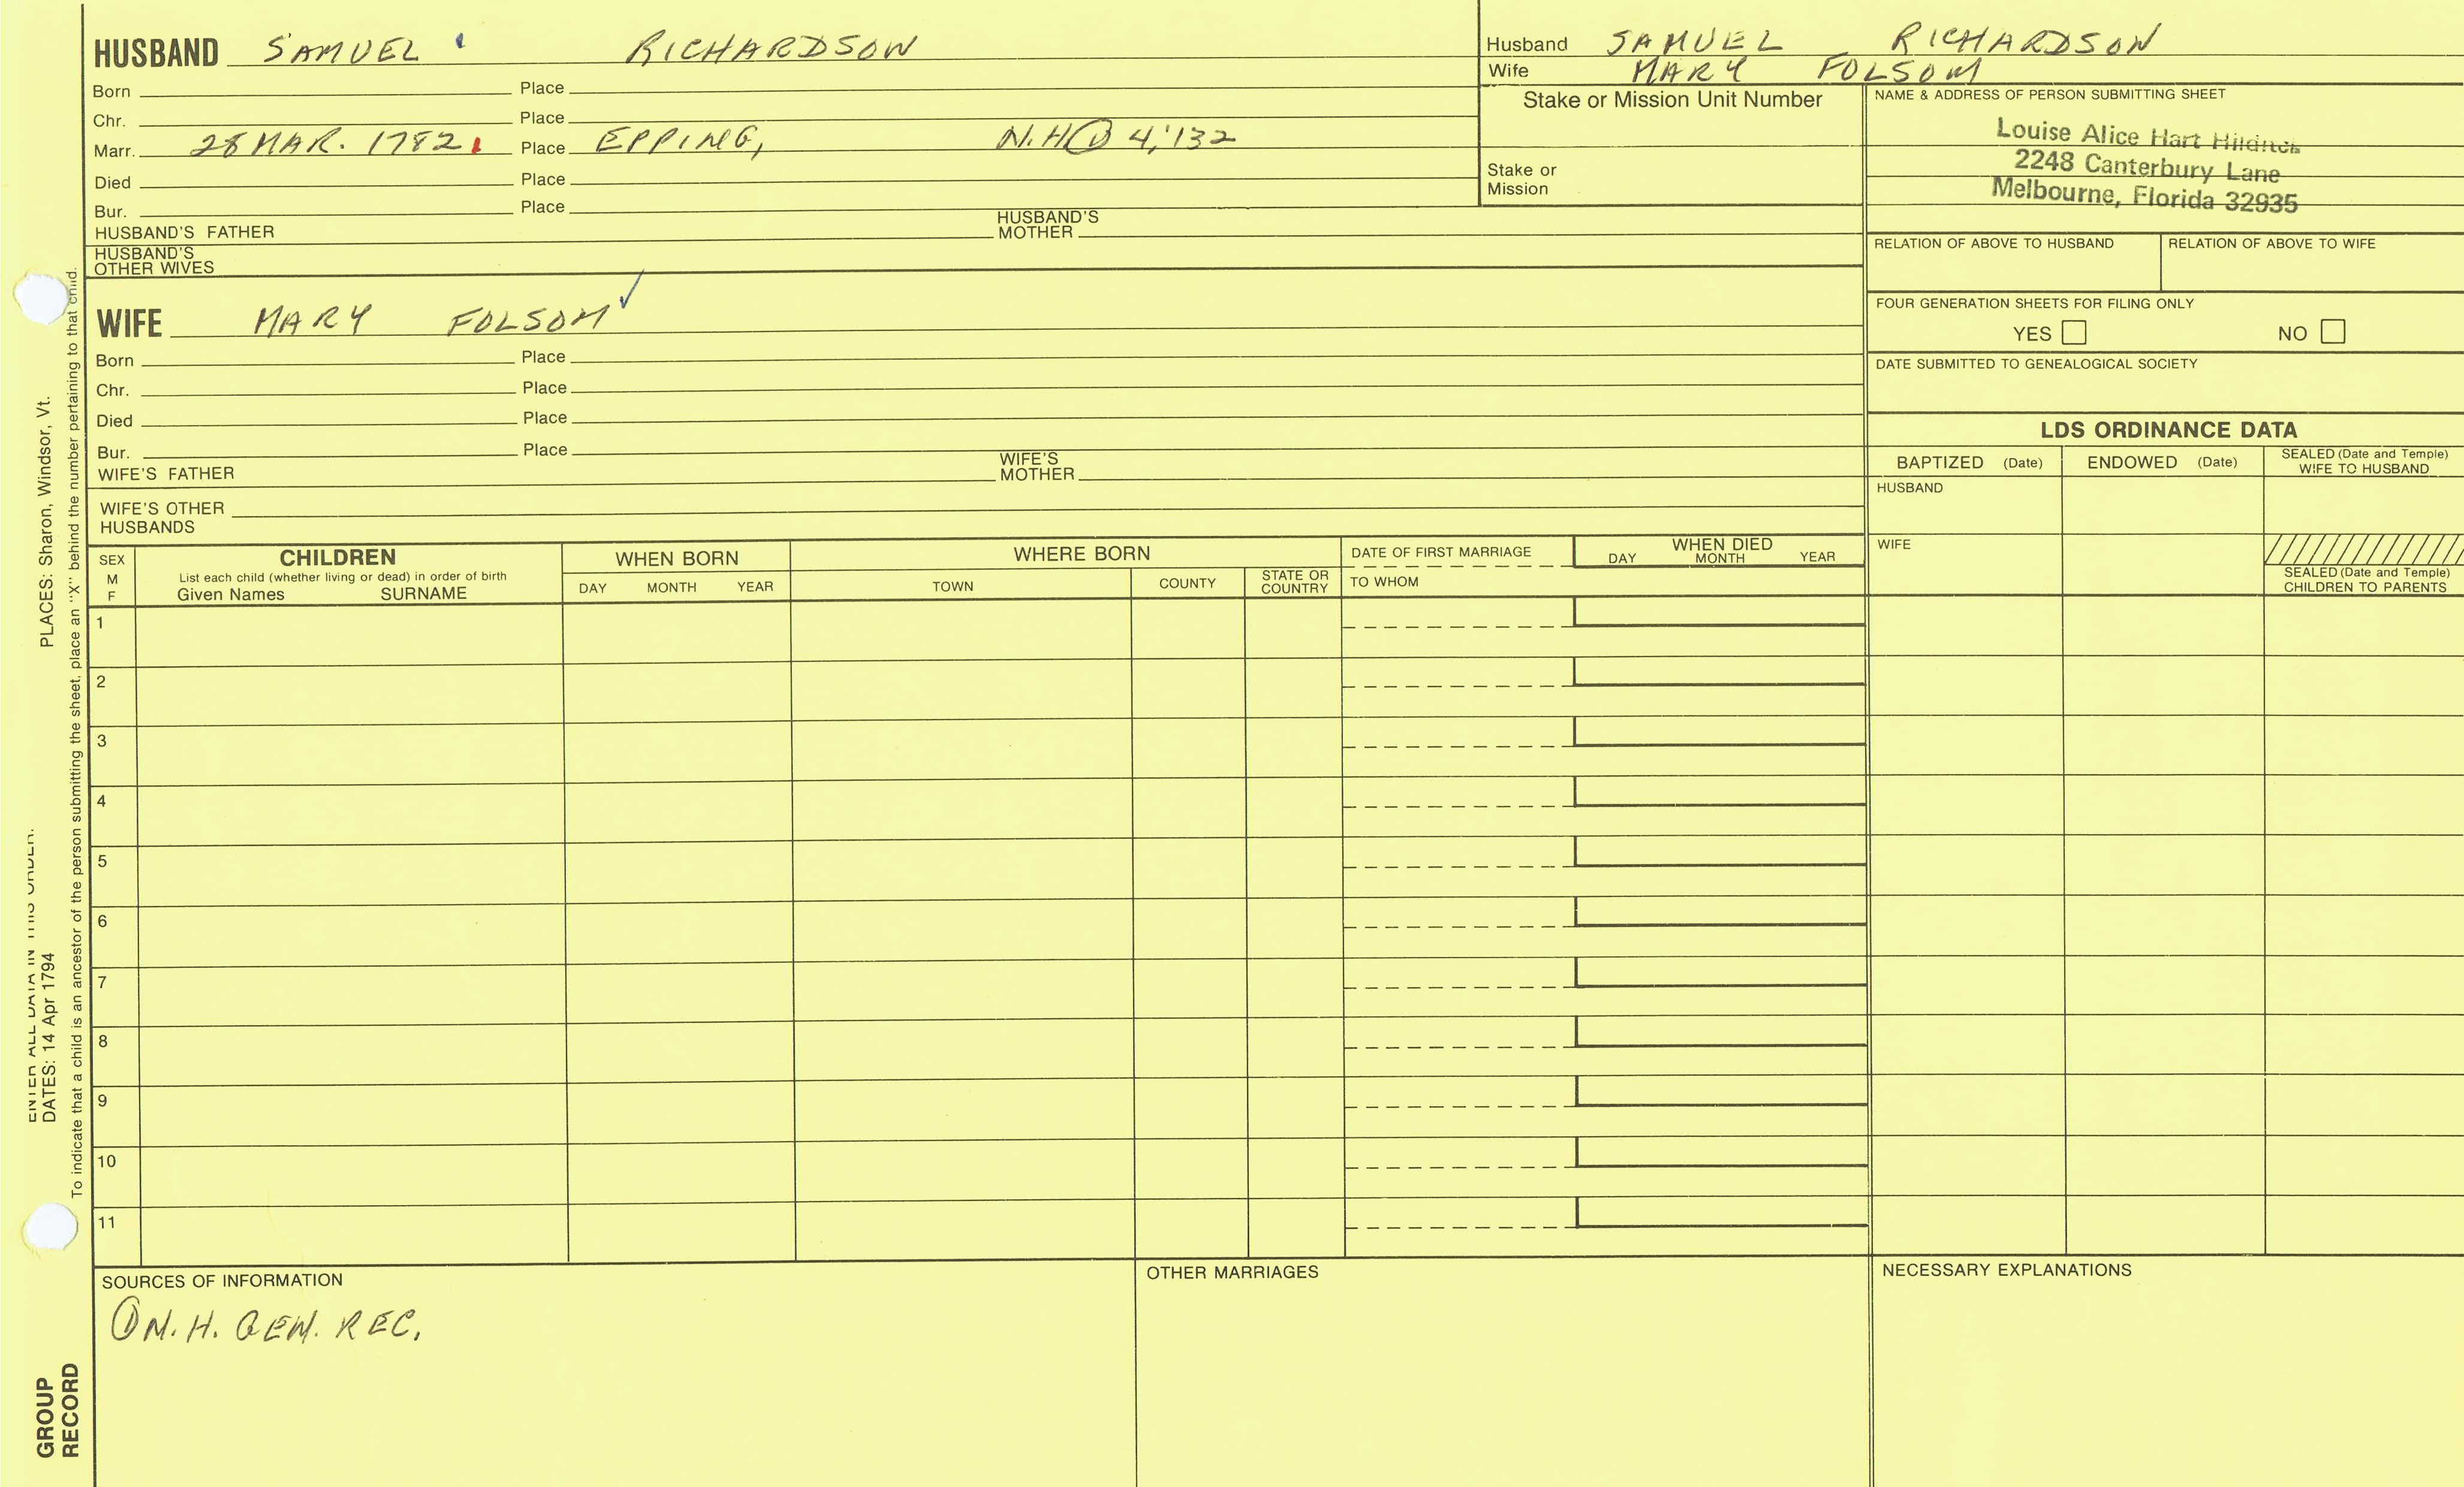 HUSBAND SAMUEL RICHARDSON
Born Place
Chr. Place
Marr. 28 MAR. 1782 Place EPPING, N.H① 4,'132
Died Place
Bur. Place
HUSBAND'S FATHER HUSBAND'S MOTHER
HUSBAND'S
OTHER WIVES
Husband SAMUEL RICHARDSON
Wife MARY FOLSOM
Stake or Mission Unit Number
Stake or
Mission
NAME & ADDRESS OF PERSON SUBMITTING SHEET
Louise Alice Hart Hilditch
2248 Canterbury Lane
Melbourne, Florida 32935
RELATION OF ABOVE TO HUSBAND RELATION OF ABOVE TO WIFE
FOUR GENERATION SHEETS FOR FILING ONLY
YES NO
DATE SUBMITTED TO GENEALOGICAL SOCIETY
WIFE MARY FOLSOM ✓
Born Place
Chr. Place
Died Place
Bur. Place
WIFE'S FATHER WIFE'S MOTHER
WIFE'S OTHER
HUSBANDS
LDS ORDINANCE DATA
BAPTIZED (Date) ENDOWED (Date) SEALED (Date and Temple) WIFE TO HUSBAND
HUSBAND
WIFE
SEALED (Date and Temple)
CHILDREN TO PARENTS
SEX
M
F
CHILDREN
List each child (whether living or dead) in order of birth
Given Names SURNAME
WHEN BORN
DAY MONTH YEAR
WHERE BORN
TOWN COUNTY STATE OR COUNTRY
DATE OF FIRST MARRIAGE
TO WHOM
WHEN DIED
DAY MONTH YEAR
1
2
3
4
5
6
7
8
9
10
11
SOURCES OF INFORMATION
① N.H. GEN. REC.
OTHER MARRIAGES
NECESSARY EXPLANATIONS
PLACES: Sharon, Windsor, Vt.
ENTER ALL DATA IN THIS ORDER:
DATES: 14 Apr 1794
To indicate that a child is an ancestor of the person submitting the sheet, place an "X" behind the number pertaining to that child.
GROUP
RECORD